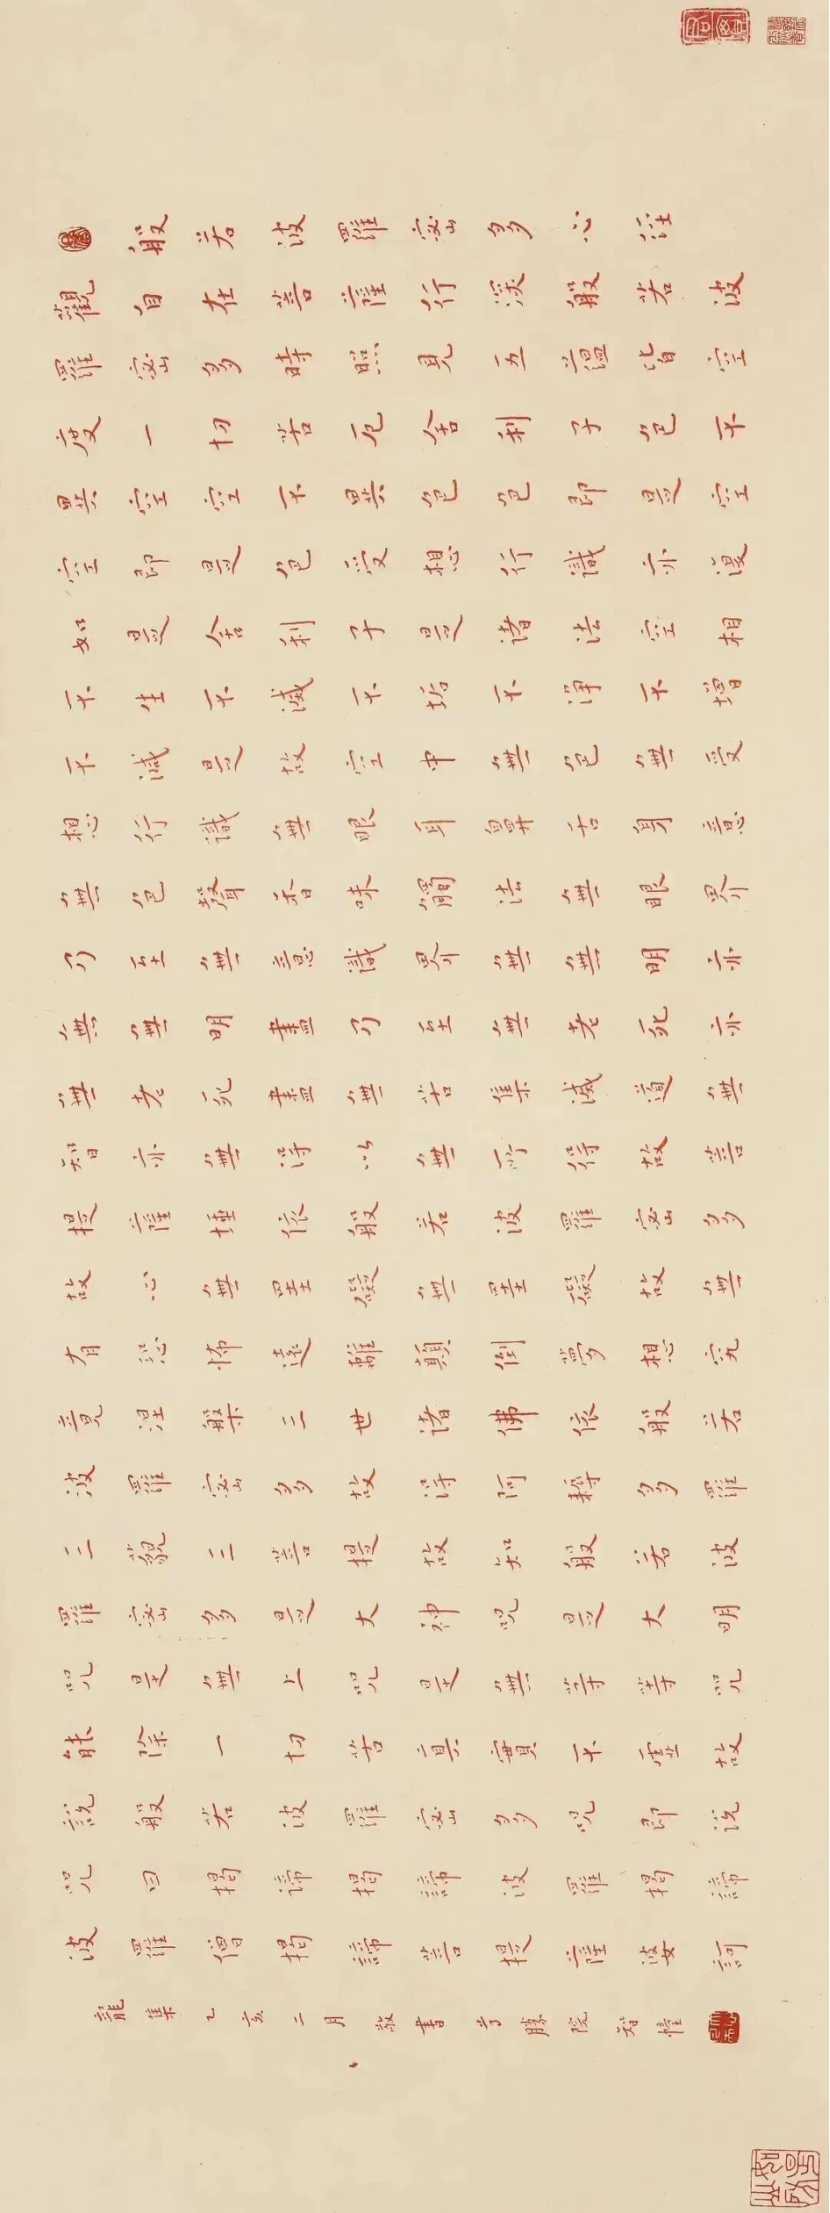 般若波羅密多心経
觀自在菩薩行深般若波
羅密多時照見五蘊皆空
度一切苦厄舍利子色不
異空空不異色色即是空
空即是色受想行識亦復
如是舍利子是諸法空相
不生不滅不垢不淨不增
不減是故空中無色無受
想行識無眼耳鼻舌身意
無色聲香味觸法無眼界
乃至無意識界無無明亦
無無明盡乃至無老死亦
無老死盡無苦集滅道無
智亦無得以無所得故菩
提薩埵依般若波羅密多
故心無罣礙無罣礙故無
有恐怖遠離顛倒夢想究
竟涅槃三世諸佛依般若
波羅密多故得阿耨多羅
三藐三菩提故知般若波
羅密多是大神咒是大明
咒是無上咒是無等等咒
能除一切苦真實不虛故
說般若波羅密多咒即說
咒曰揭諦揭諦波羅揭諦
波羅僧揭諦菩提薩婆訶
龍集乙亥二月敬書 勝院智幢